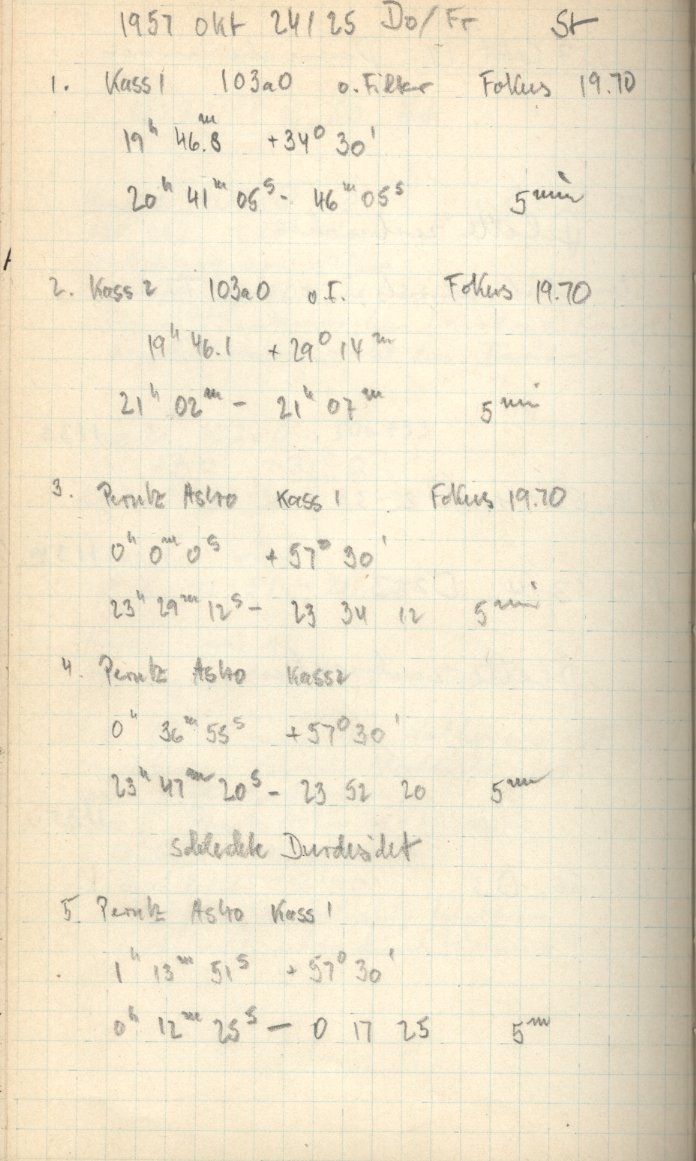 1957 Okt 24/25 Do/Fr St
1. Kass 1 103a0 o. Filter Fokus 19.70
19ʰ 46.8ᵐ +34° 30'
20ʰ 41ᵐ 05ˢ - 46ᵐ 05ˢ 5 min
2. Kass 2 103a0 o.F. Fokus 19.70
19ʰ 46.1 +29° 14ᵐ
21ʰ 02ᵐ - 21ʰ 07ᵐ 5 min
3. Perutz Astro Kass 1 Fokus 19.70
0ʰ 0ᵐ 0ˢ +57° 30'
23ʰ 29ᵐ 12ˢ - 23 34 12 5 min
4. Perutz Astro Kass 2
0ʰ 36ᵐ 55ˢ +57° 30'
23ʰ 47ᵐ 20ˢ - 23 52 20 5ᵐ
schlechte Durchsicht
5. Perutz Astro Kass 1
1ʰ 13ᵐ 51ˢ +57° 30'
0ʰ 12ᵐ 25ˢ - 0 17 25 5ᵐ